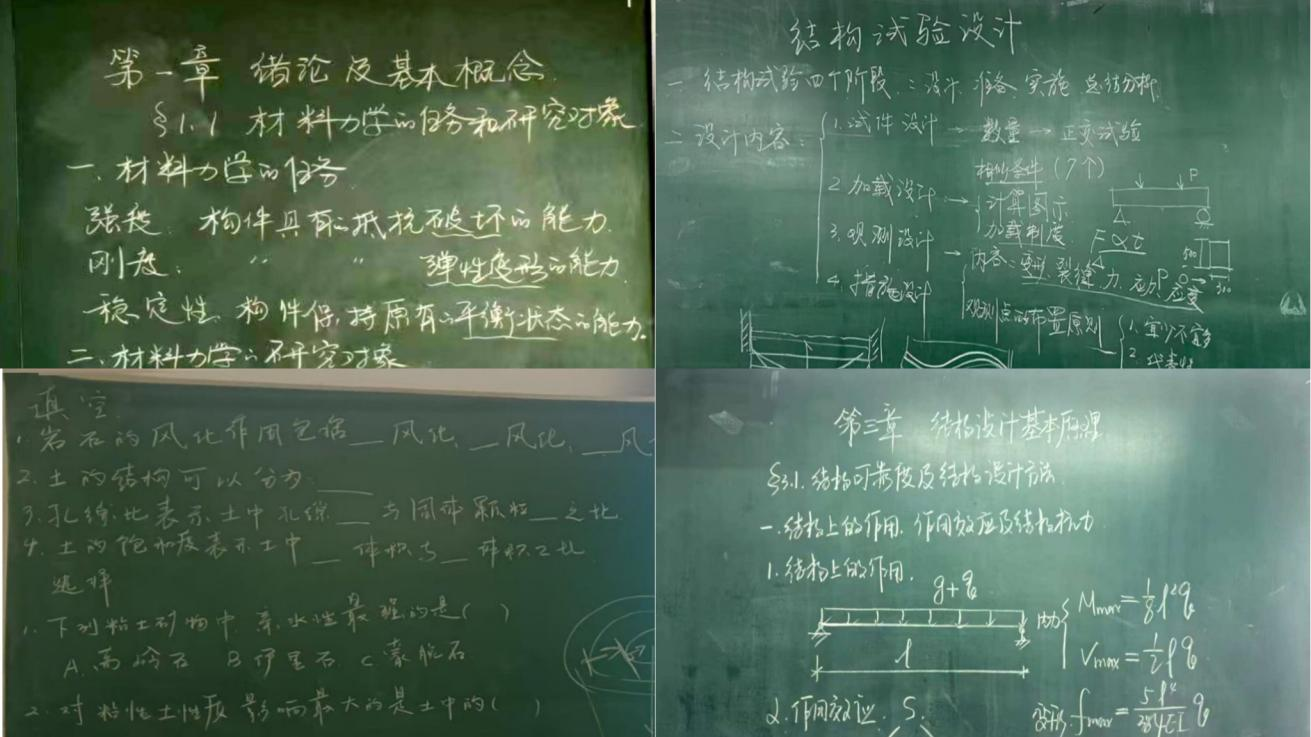 第一章 绪论及基本概念.
§1.1 材料力学的任务和研究对象
一、材料力学的任务.
强度. 构件具有的抵抗破坏的能力.
刚度: 〃 〃 弹性变形的能力.
稳定性. 构件保持原有的平衡状态的能力.
二、材料力学的研究对象
结构试验设计
一 结构试验四个阶段: 设计 准备 实施 总结分析
二 设计内容:
1. 试件设计 → 数量 → 正交试验
相似条件 (7个)
2 加载设计 →
计算图示
加载制度.
P
F α t
3. 观测设计 → 内容: 变形, 裂缝, 力, 应变
4. 措施设计
观测点的布置原则
1. 宜少不宜多
2. 代表性
P
500
填空.
1. 岩石的风化作用包括__风化、__风化、__风
2. 土的结构可以分为:____
3. 孔隙比表示土中孔隙__与固体颗粒__之比
4. 土的饱和度表示土中__体积与__体积之比
选择
1. 下列粘土矿物中, 亲水性最强的是( )
A. 高岭石 B 伊里石 C 蒙脱石
2. 对粘性土性质影响最大的是土中的( )
第三章 结构设计基本原理
§3.1. 结构可靠度及结构设计方法.
一. 结构上的作用. 作用效应及结构抗力
1. 结构上的作用.
g+q
l
内力
Mmax=1/8 l²q
Vmax=1/2 l q
2. 作用效应. S.
变形. fmax=5l⁴/384EI q